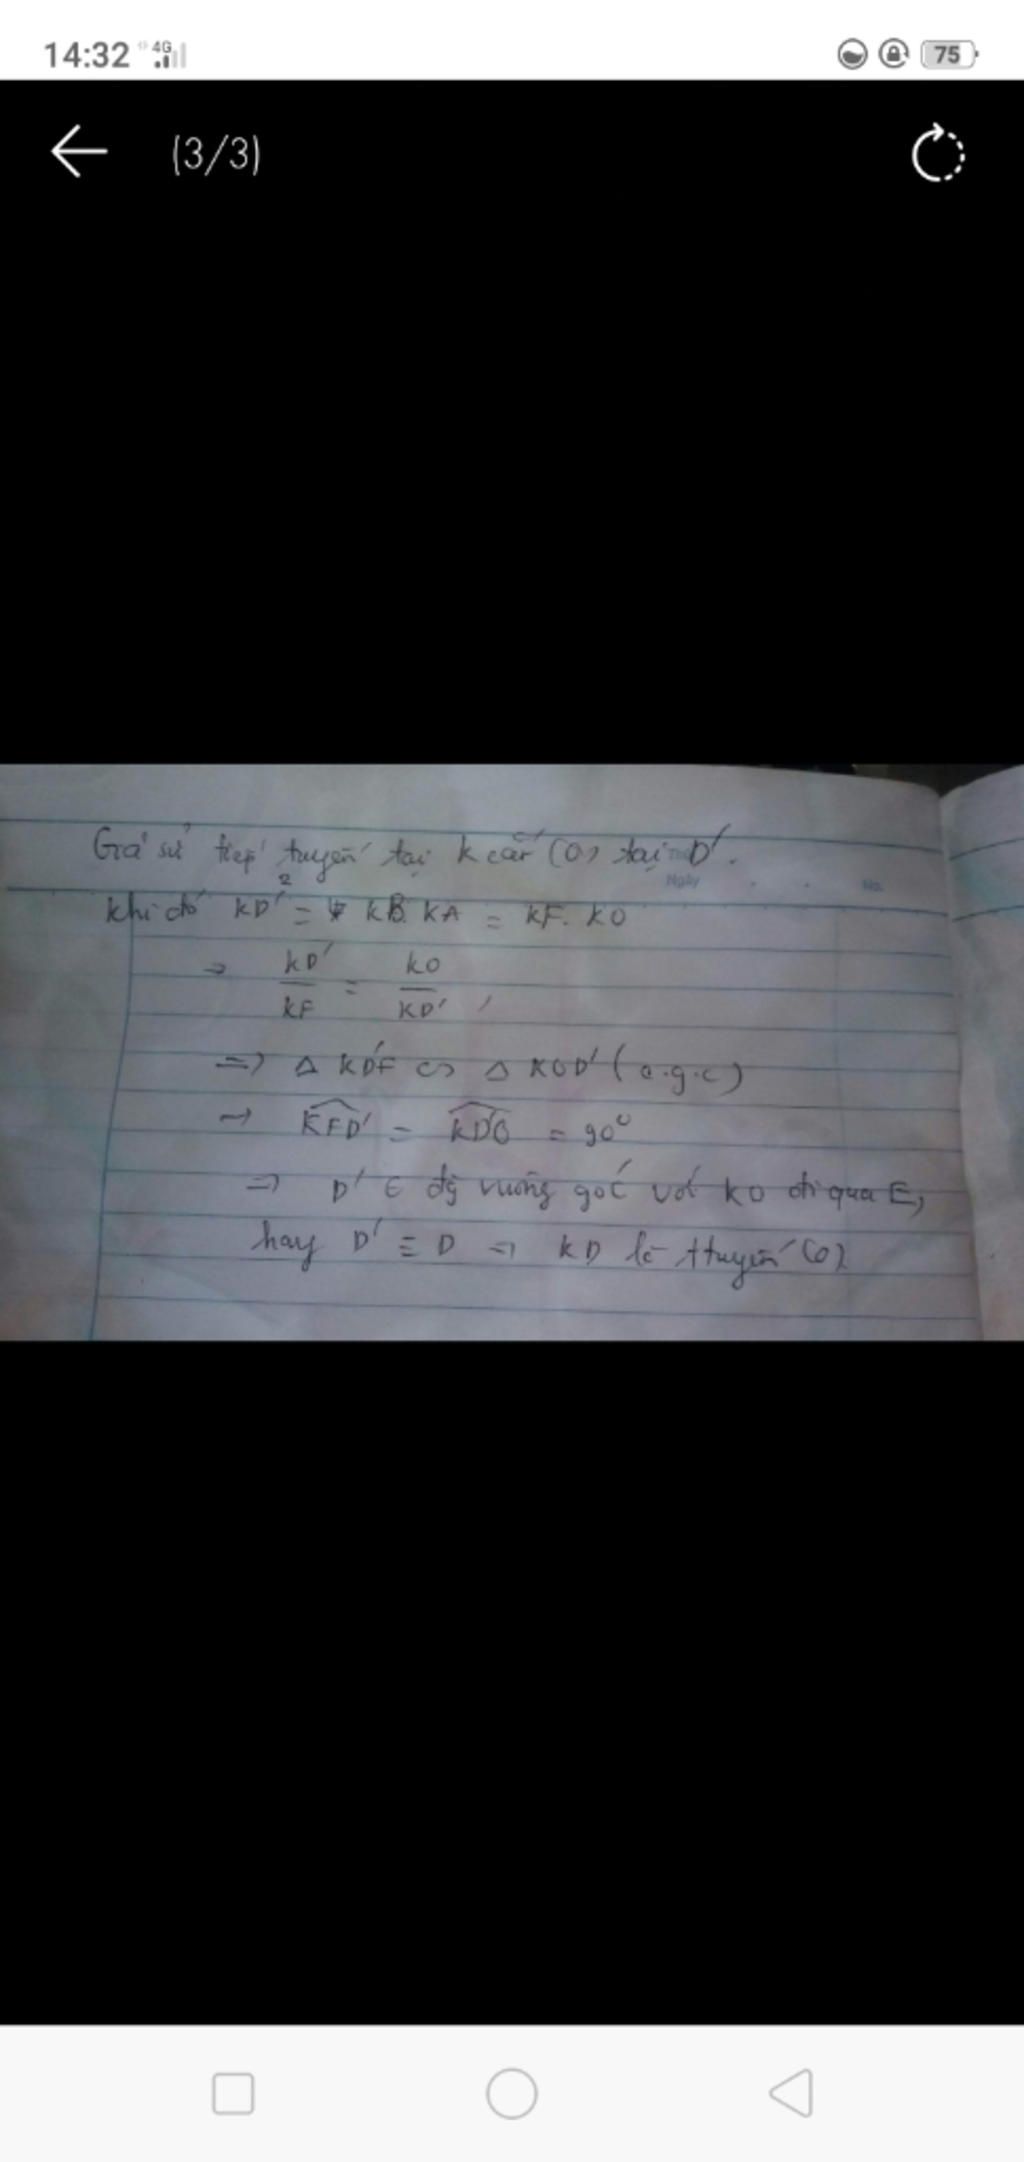 14:32 4G 75
(3/3)
Giả sử tiếp tuyến tại K cắt (O) tại D'.
Ngày No.
Khi đó KD'² = KB. KA = KF. KO
=> KD'/KF = KO/KD',
=> Δ KD'F ∽ Δ KOD' (c.g.c)
=> KFD' = KD'O = 90°
=> D' ∈ đg vuông góc với KO đi qua E,
hay D' ≡ D => KD là ttuyến (O)